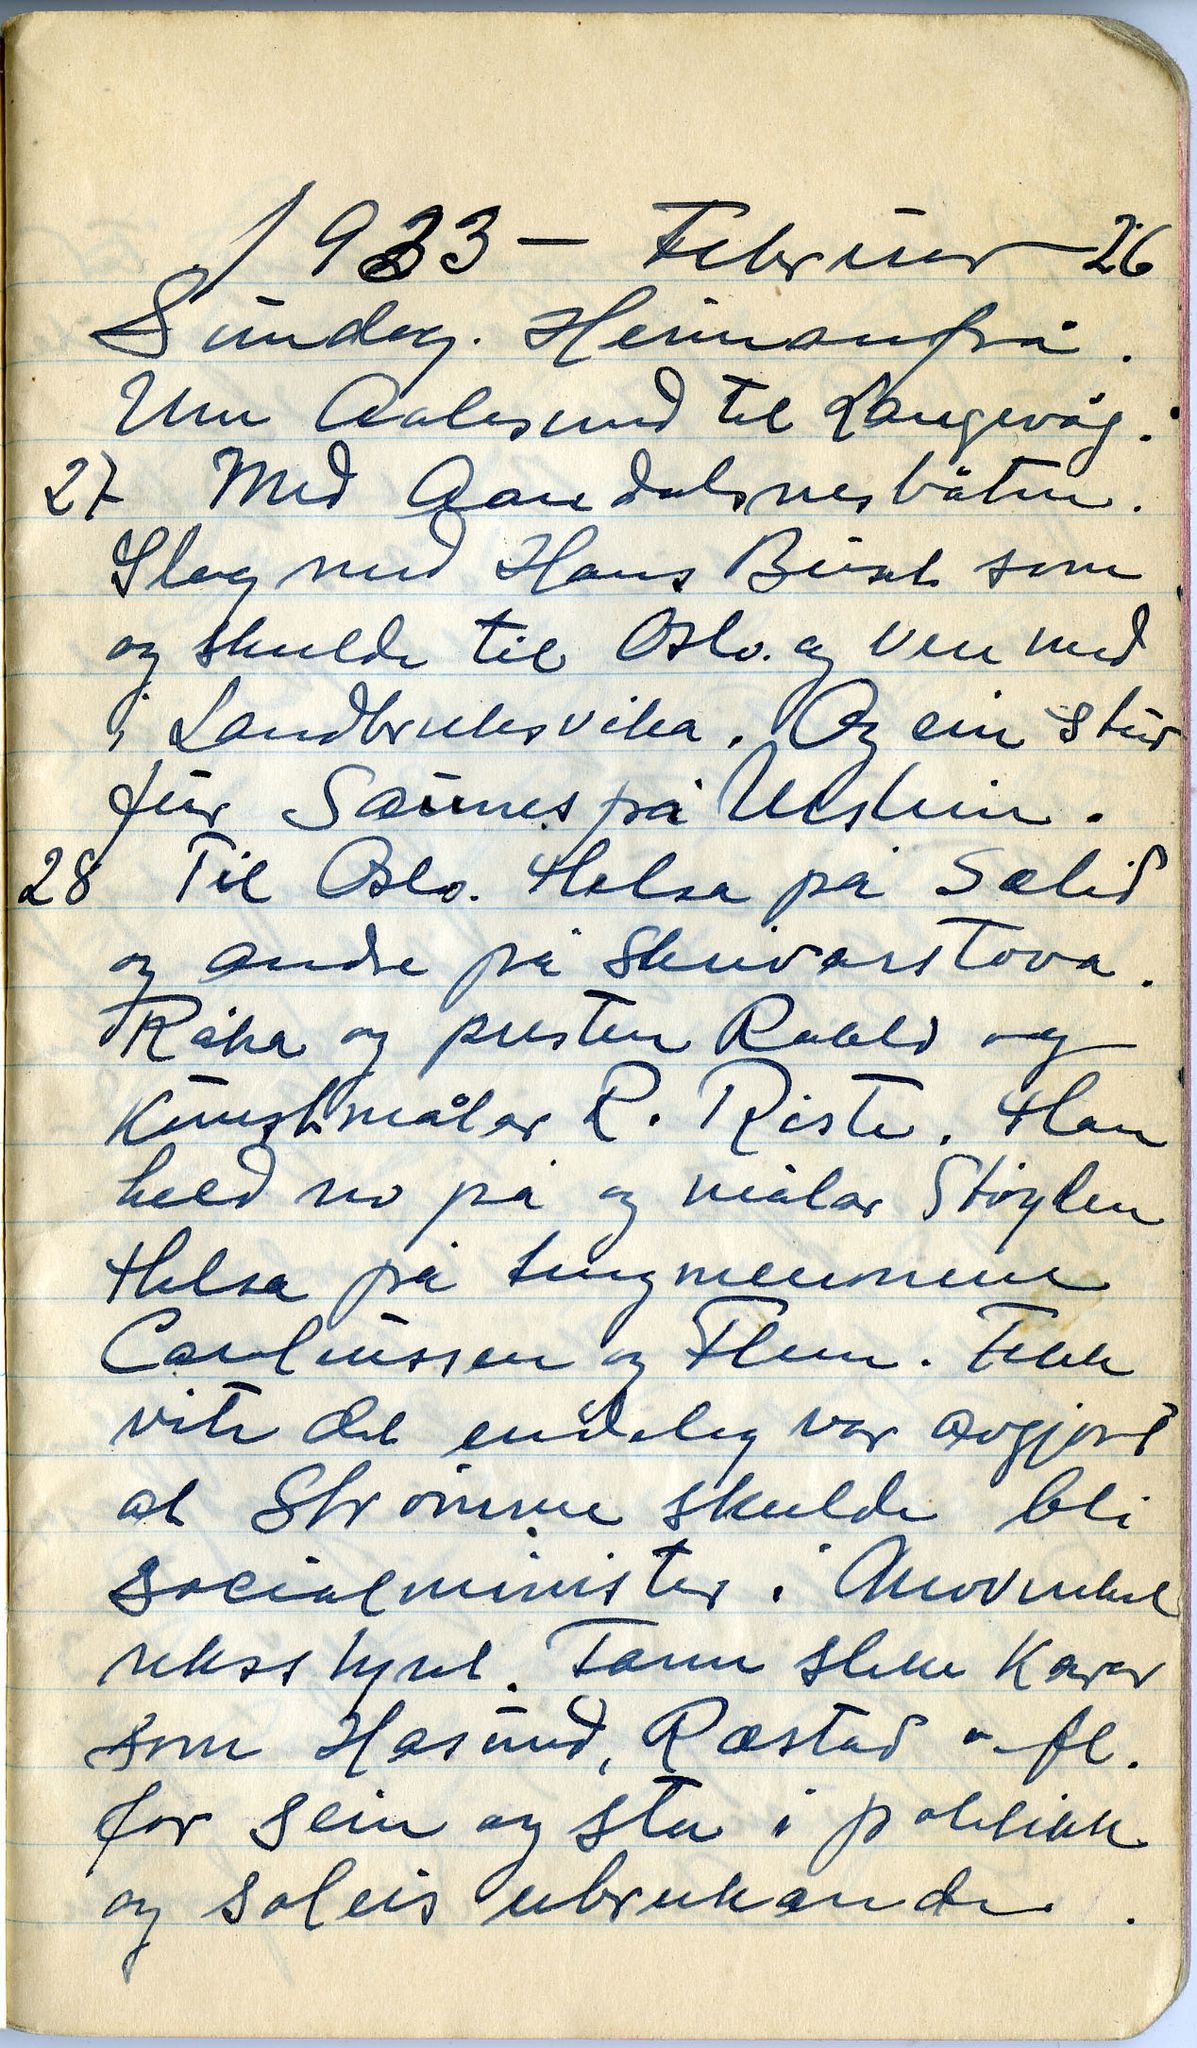 1933 – Februar 26
Sundag. Heimanfrå.
Um Aalesund til Langevåg.
27 Med Aandalsnesbåten.
Slag med Hans Busk som
og skulde til Oslo. og ven med
i Landbruksvika. Og ein
fur Saunes på
28 Til Oslo. Helsa på Sælid
og andre på Skrivarstova.
Råka og presten og
Kunstmålar R. Riste. Han
held no på og målar Støylen
Helsa på tingmennene
Carolinussen og Flem. Fekk
vite det endeleg var avgjort
at Strømme skulde bli
socialminister i Mowinckel
riksstyret. Tann slike Karar
som Hasund, Ræstad o. fl.
for sein og sta i politikk
og soleis ubrukande.